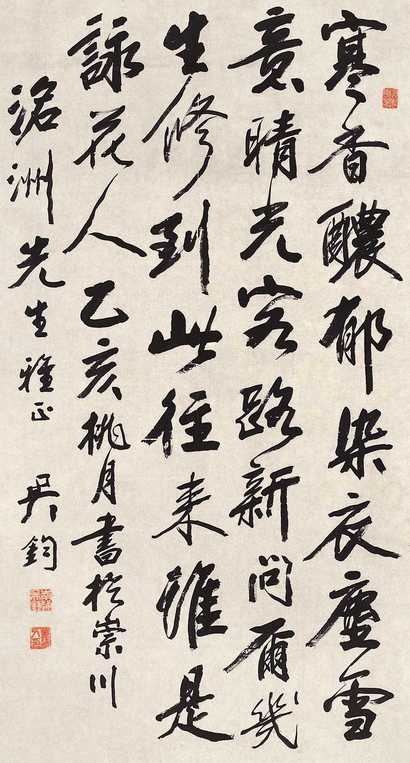 寒香醲郁染衣塵雪
意晴光客路新問爾幾
生修到此往来誰是
詠花人乙亥桃月書於崇川
洺洲先生雅正吴鈞